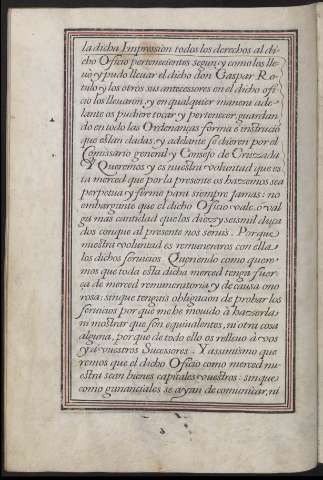 la dicha Impression todos los derechos al di-
cho Officio pertenecientes segun, y como los lle
uo, y pudo lleuar el dicho don Gaspar Ro
tulo y los otros sus antecessores en el dicho ofi
cio los lleuaron, y en qualquier manera ade-
lante os pudiere tocar, y pertenecer, guardan
do en todo las Ordenanças forma e instrucio
que estan dadas, y adelante se dieren por el
Comissario general y Consejo de Cruzada
Y Queremos y es nuestra voluntad que es
ta merced que por la presente os hazemos sea
perpetua y firme para siempre jamas: no
embargante que el dicho Officio vale, o val
ga mas cantidad que los diez y seis mil duca
dos con que al presente nos seruis. Porque
nuestra voluntad es remuneraros con ella
los dichos seruicios. Queriendo como quere-
mos que toda esta dicha merced tenga fuer
ça de merced remuneratoria, y de causa ono
rosa: sin que tengais obligacion de probar los
seruicios por que me he mouido à hazerla:
ni mostrar que son equiualentes, ni otra cosa
alguna, por que de todo ello os relleuo à vos
y à vuestros Sucessores. Y assimismo que
remos que el dicho Officio como merced nu-
estra sean bienes capitales vuestros: sin que
como gananciales se ayan de comunicar, ni